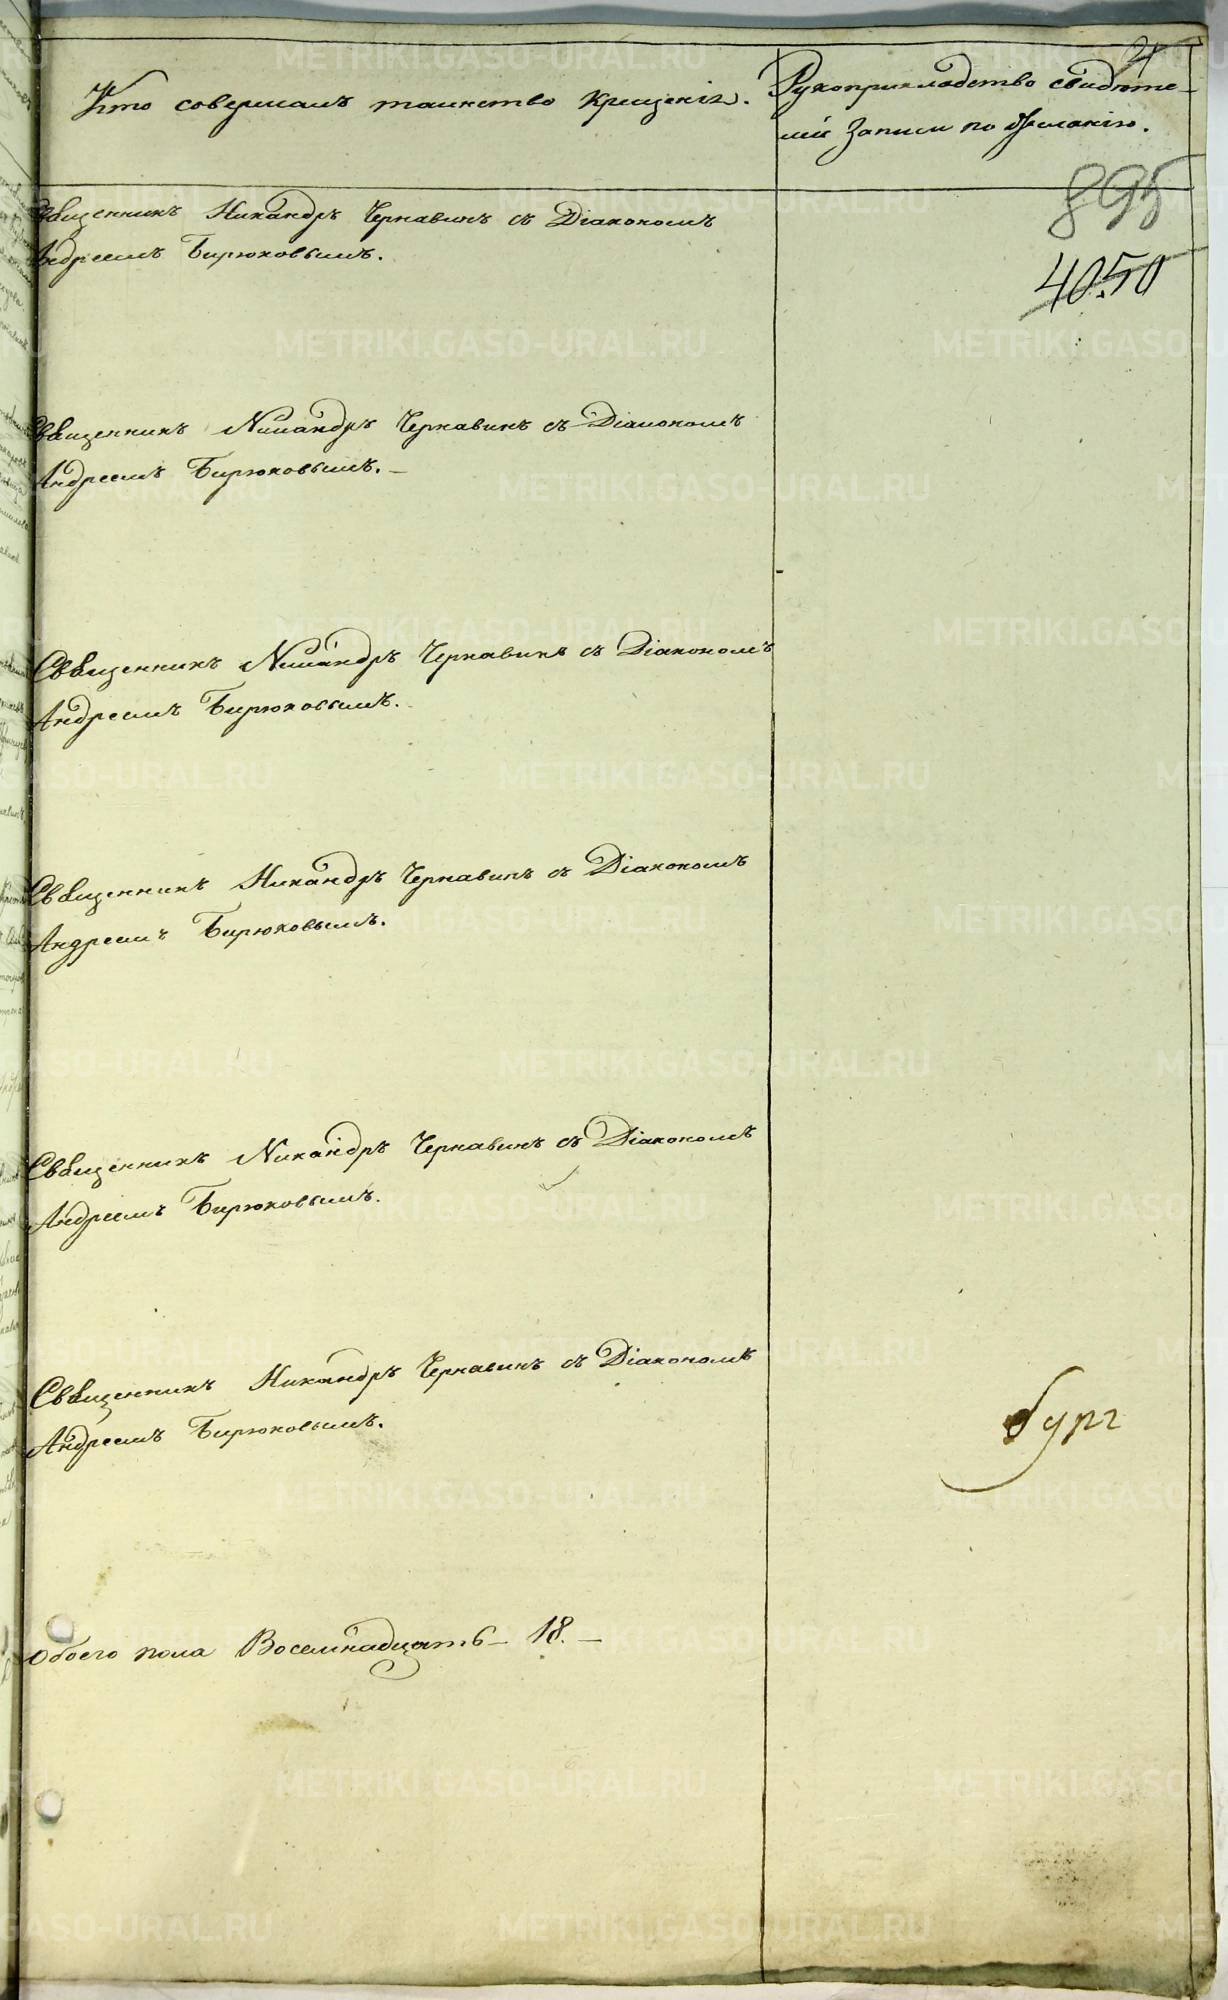 Кто совершалъ таинство крещенія.
Рукоприкладство свидѣте-
лей записи по желанію.
895
4050
Священникъ Никандръ Чернавинъ съ Діакономъ
Андреемъ Бирюковымъ.
Священникъ Никандръ Чернавинъ съ Діакономъ
Андреемъ Бирюковымъ. –
Священникъ Никандръ Чернавинъ съ Діакономъ
Андреемъ Бирюковымъ.
Священникъ Никандръ Чернавинъ съ Діакономъ
Андреемъ Бирюковымъ.
Священникъ Никандръ Чернавинъ съ Діакономъ
Андреемъ Бирюковымъ.
Священникъ Никандръ Чернавинъ съ Діакономъ
Андреемъ Бирюковымъ.
бург
обоего пола Восемнадцать – 18. –
METRIKI.GASO-URAL.RU